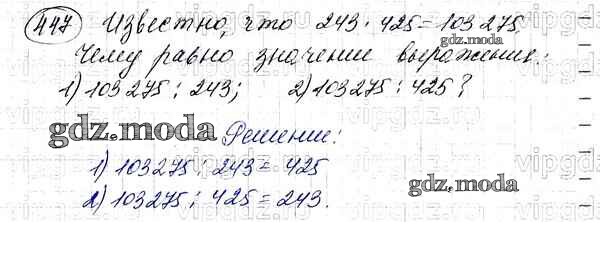 447 Известно, что 243 · 425 = 103 275.
Чему равно значение выражения:
1) 103 275 : 243; 2) 103 275 : 425?
gdz.moda Решение:
1) 103275 : 243 = 425
gdz.moda
2) 103275 : 425 = 243.